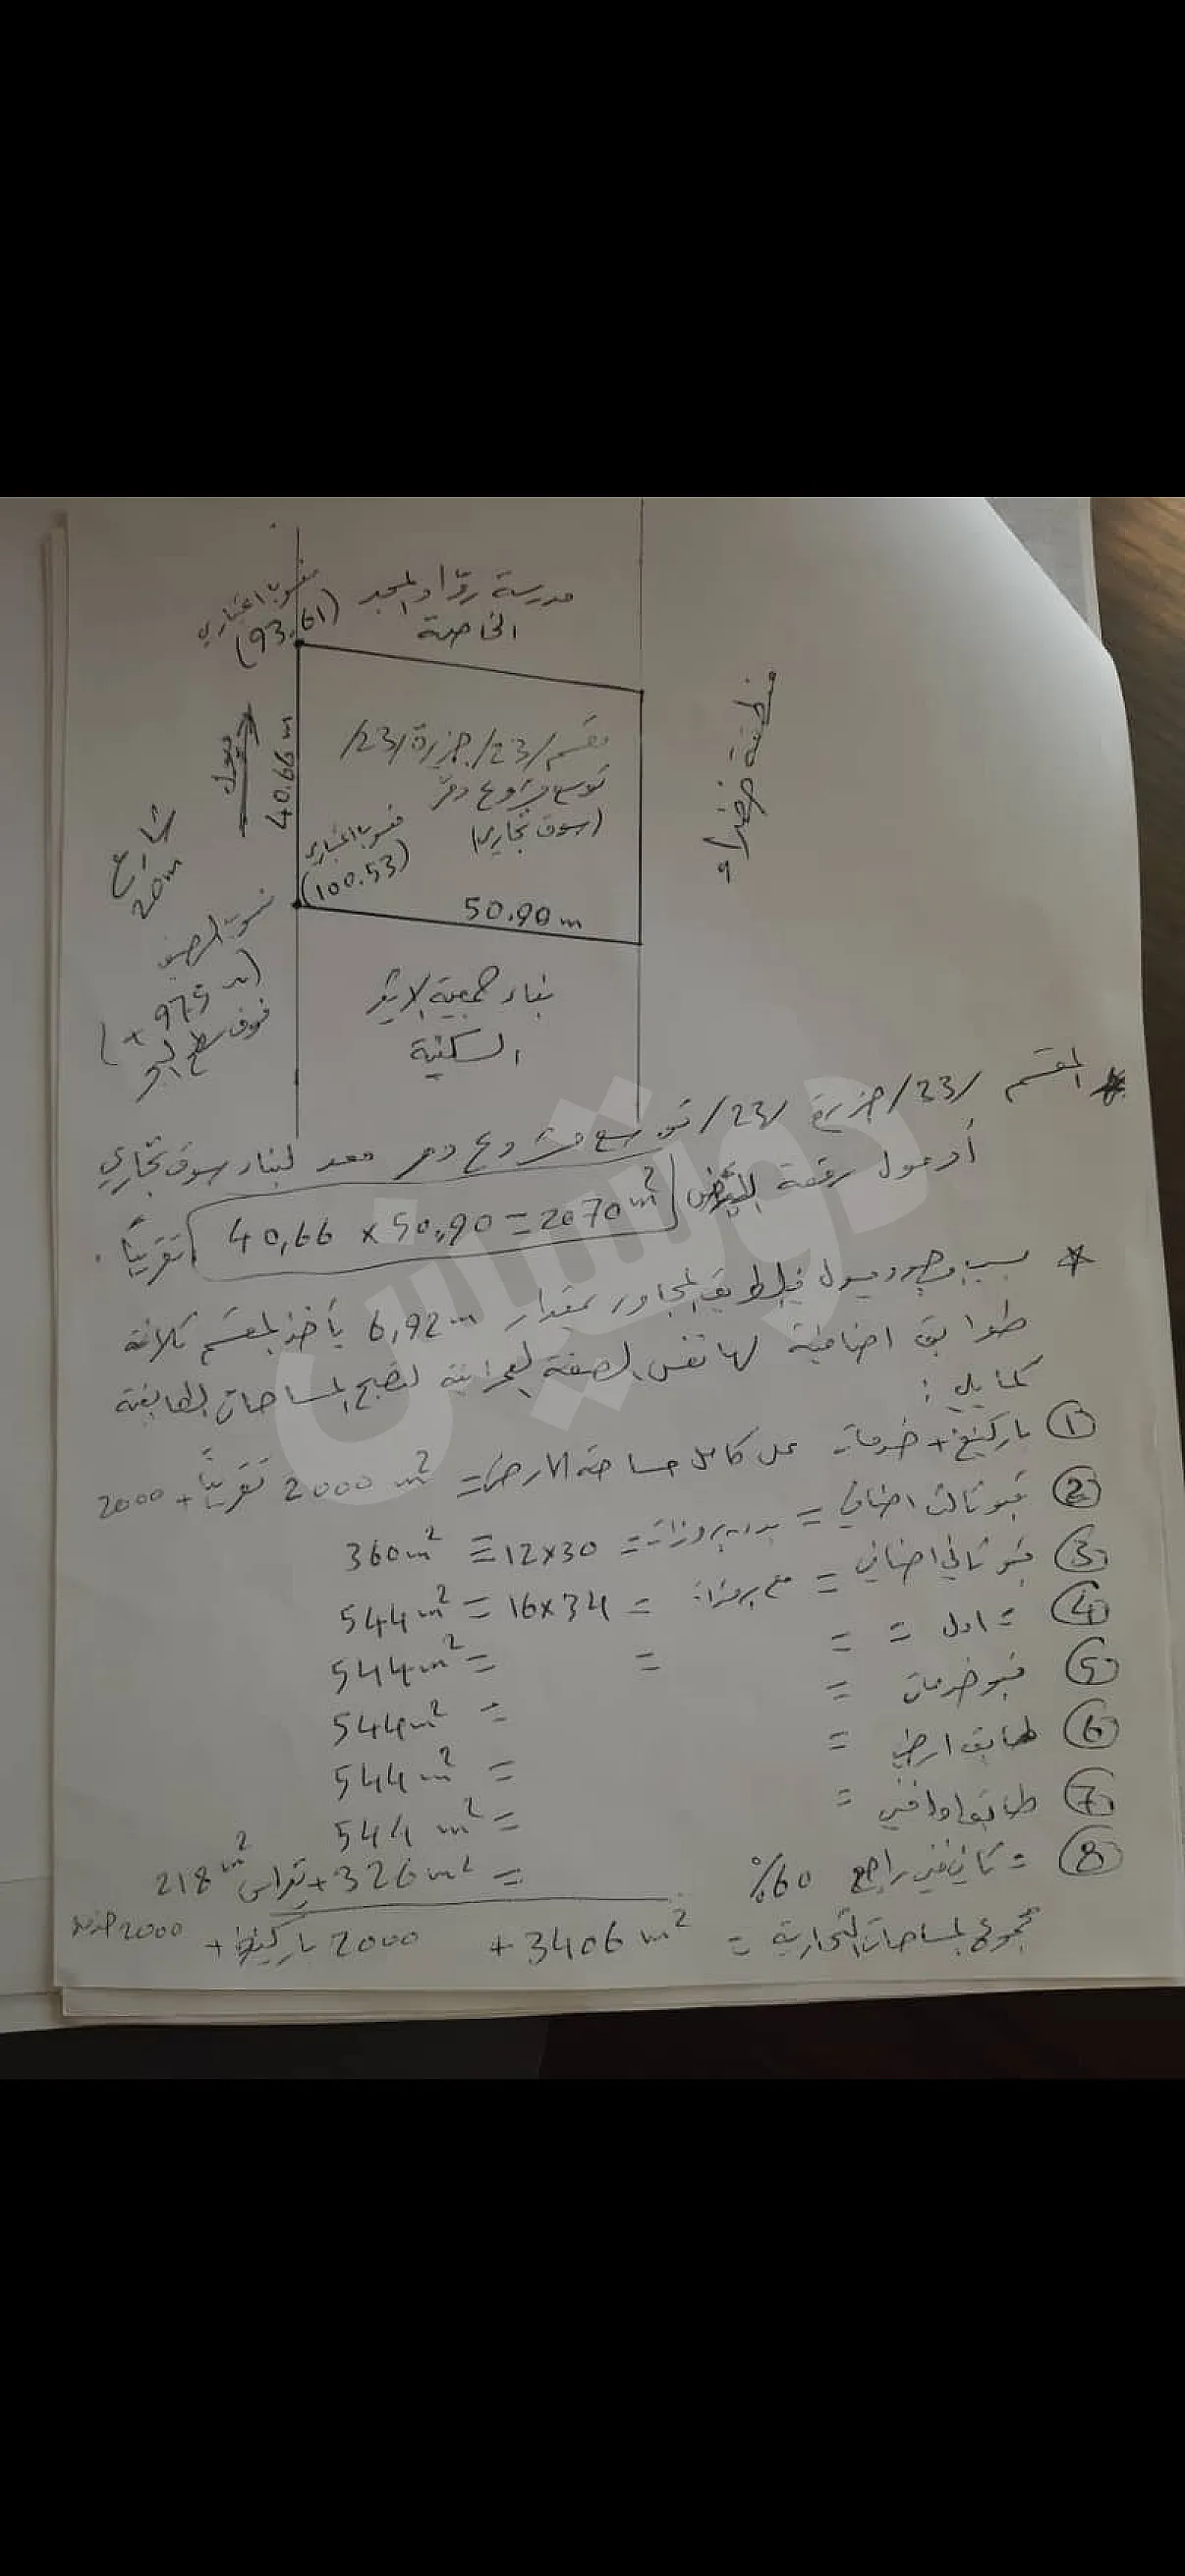 مدرسة روّاد المجد
الخاصة
منسوب اعتباري
(93.61)
مقسم /23/ جزيرة /23/
توسع مشروع دمر
(سوق تجاري)
منسوب اعتباري
(100.53)
40.66 m
ميول
50.90 m
منطقة خضراء
شارع
20 m
(+975 م)
فوق سطح البحر
بناء جمعية
السكنية
* المقسم /23/ جزيرة /23/ توسع مشروع دمر معد لبناء سوق تجاري
أو مول رقعة الأرض 40,66 x 50,90 = 2070 m² تقريباً.
* بسبب وجود ميول في الطريق المجاور بمقدار 6,92 m يأخذ المقسم ثلاثة
طوابق اضافية لها نفس الصفة العمرانية لتصبح المساحات الطابقية
كما يلي:
① باركينغ + خدمات على كامل مساحة الأرض = 2000 m² تقريباً + 2000
② قبو ثالث اضافي = بدون بروزات = 12x30 = 360 m²
③ قبو ثاني اضافي = مع بروزات = 16x34 = 544 m²
④ = اول = = = = 544 m²
⑤ قبو خدمات = = 544 m²
⑥ طابق ارضي = = 544 m²
⑦ طابق اول فني = = 544 m²
⑧ = ثاني فني راجع 60% = 326 m² + تراس 218 m²
مجموع المساحات التجارية = 3406 m² + 2000 باركينغ + 2000
دوشين